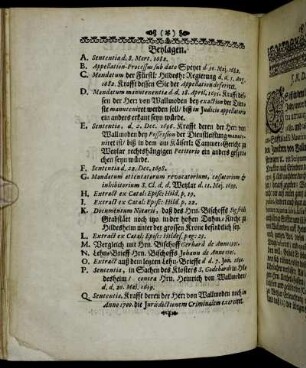 (✠)
Beylagen.
A. Sententia d. 8. Mart. 1682.
B. Appellation-Processus sub dato Speyer d. 10. Maj. 1682.
C. Mandatum der Fürstl. Hildesh: Regierung d. d. 7. Aug.
1682. Krafft dessen Sie der Appellation deferiret.
D. Mandatum manutenentia d. d. 18. April. 1695. Krafft des-
sen der Herr von Wallmoden bey exaction der Dien-
ste manuteniret werden soll / biß in Judicio appellatorio
ein anders erkant seyn würde.
E. Sententia, d. 2. Dec. 1698. Krafft deren der Herr von
Wallmoden bey Possession der Diensten so lang manute-
niret ist / biß in dem am Käyserl: Cammer-Gericht zu
Wetzlar rechtshängigen Petitorio ein anders gespro-
chen seyn würde.
F. Sententia, d. Dec. 1698.
G. Mandatum attentatorum revocatorium, cassatorium &
inhibitorium S. Cl. d. d. Wetzlar d. 12. Maj. 1699.
H. Extract ex Catal: Episc: Hild. p. 22.
I. Extract ex Catal: Episc: Hild. p. 22.
K. Documentum Notarii, daß des Hrn. Bischoffs
Grabstätt noch in der hohen Dohm-Kirche zu
Hildesheim unter der grossen Krone befindlich sey.
L. Extract ex Catal: Episc: Hildes. pag. 22.
M. Vergleich mit Hrn. Bischoff Gerhard de Anno
N. Lehns-Brieff Hrn. Bischoffs Johann de Anno
O. Extract auß dem letzten Lehn-Brieffe d. d. 7. Jan.
P. Sententia, in Sachen des Klosters S. Godehard in Hil-
desheim / contra Hrn. Henrich von Wallmoden
d. d. 20. Maj. 1619.
Q. Sententia, Krafft deren der Herr von Wallmoden noch in
Anno 1700 die Jurisdictionem Criminalem exerciret.